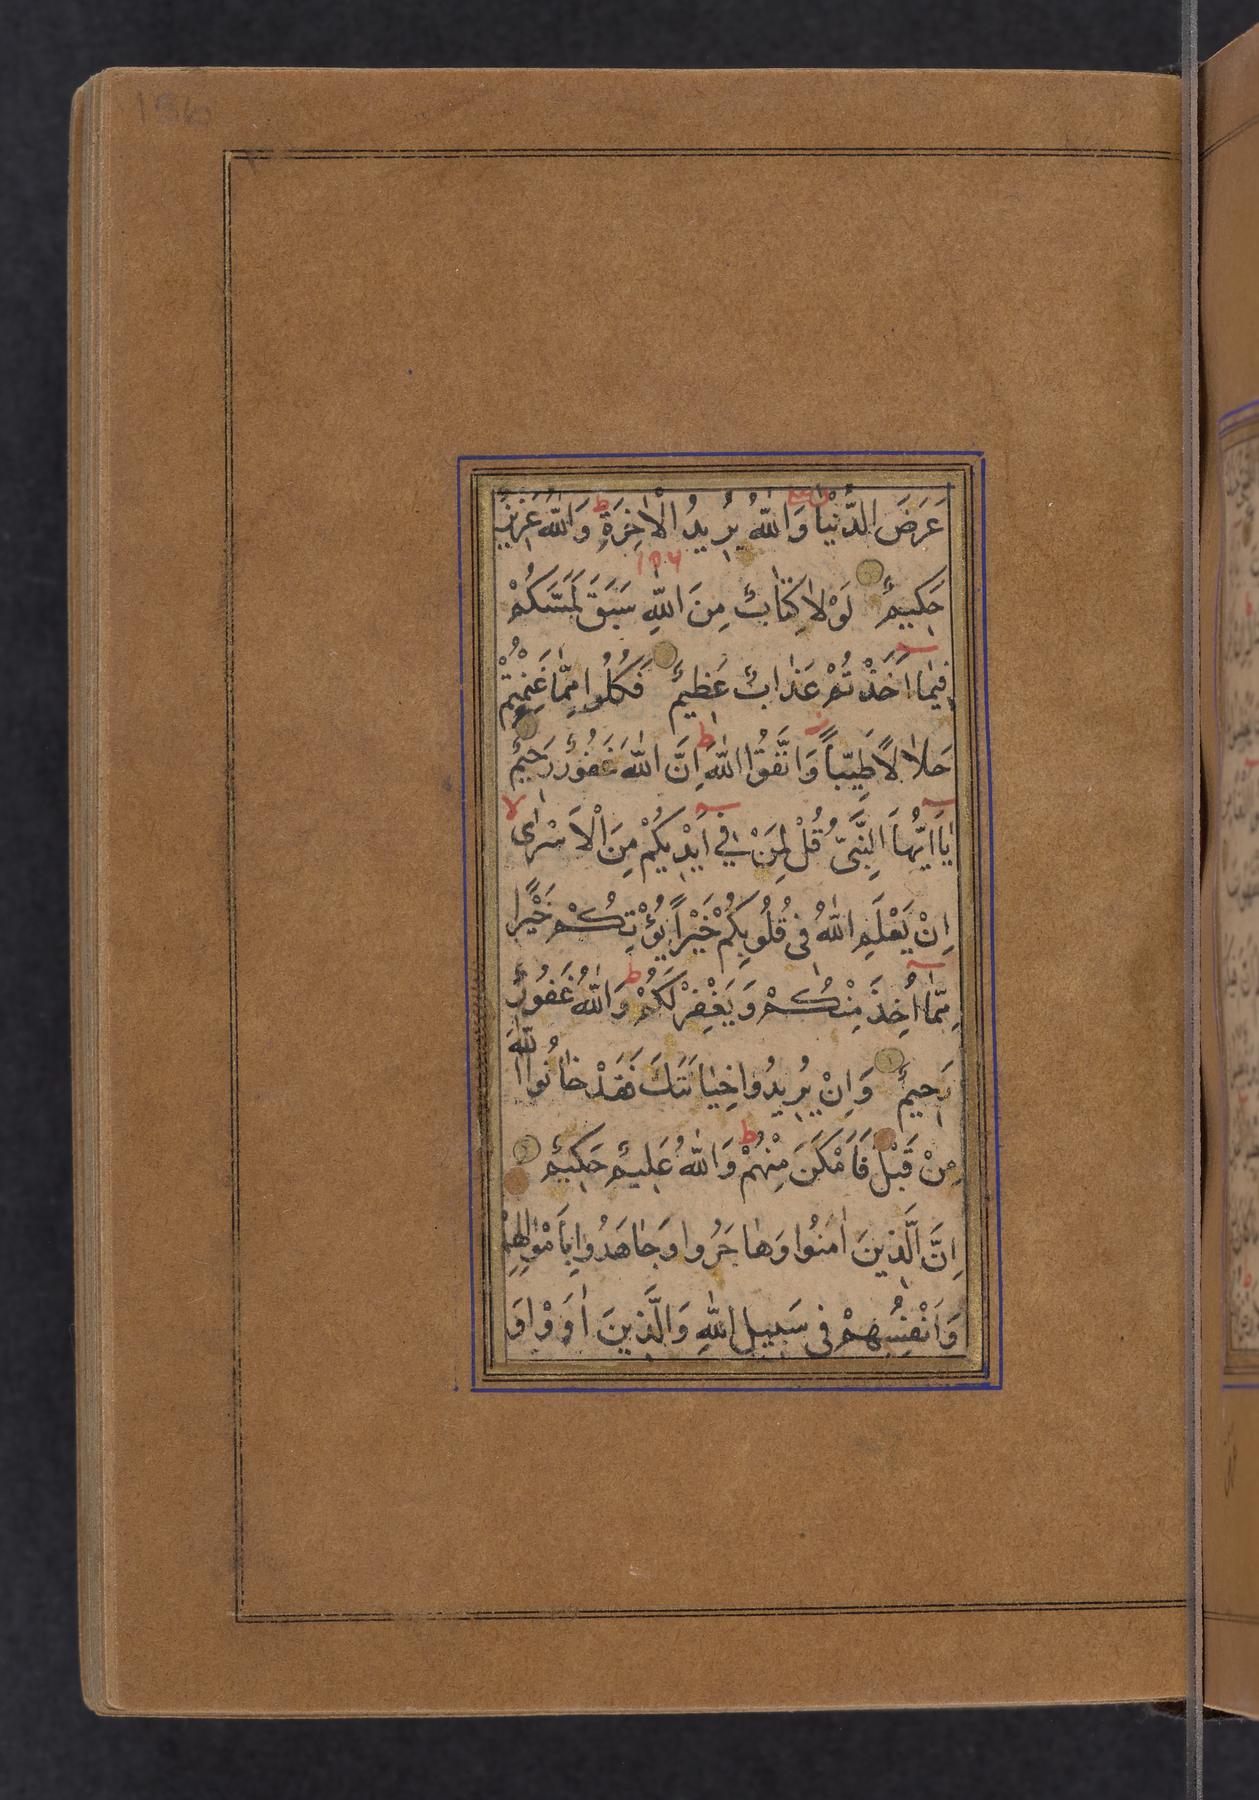 عَرَضَ الدُّنْيَا وَاللّٰهُ يُرِيدُ الْاٰخِرَةِ وَاللّٰهُ عَزِيزٌ
حَكِيمٌ لَوْلَا كِتَابٌ مِنَ اللّٰهِ سَبَقَ لَمَسَّكُمْ
فِيمَا اَخَذْتُمْ عَذَابٌ عَظِيمٌ فَكُلُوا مِمَّا غَنِمْتُمْ
حَلَالًا طَيِّبًا وَاتَّقُوا اللّٰهَ اِنَّ اللّٰهَ غَفُورٌ رَحِيمٌ
يَا اَيُّهَا النَّبِيُّ قُلْ لِمَنْ فِي اَيْدِيكُمْ مِنَ الْاَسْرٰى
اِنْ يَعْلَمِ اللّٰهُ فِي قُلُوبِكُمْ خَيْرًا يُؤْتِكُمْ خَيْرًا
مِمَّا اُخِذَ مِنْكُمْ وَيَغْفِرْ لَكُمْ وَاللّٰهُ غَفُورٌ
رَحِيمٌ وَاِنْ يُرِيدُوا خِيَانَتَكَ فَقَدْ خَانُوا اللّٰهَ
مِنْ قَبْلُ فَاَمْكَنَ مِنْهُمْ وَاللّٰهُ عَلِيمٌ حَكِيمٌ
اِنَّ الَّذِينَ اٰمَنُوا وَهَاجَرُوا وَجَاهَدُوا بِاَمْوَالِهِمْ
وَاَنْفُسِهِمْ فِي سَبِيلِ اللّٰهِ وَالَّذِينَ اٰوَوْا وَ